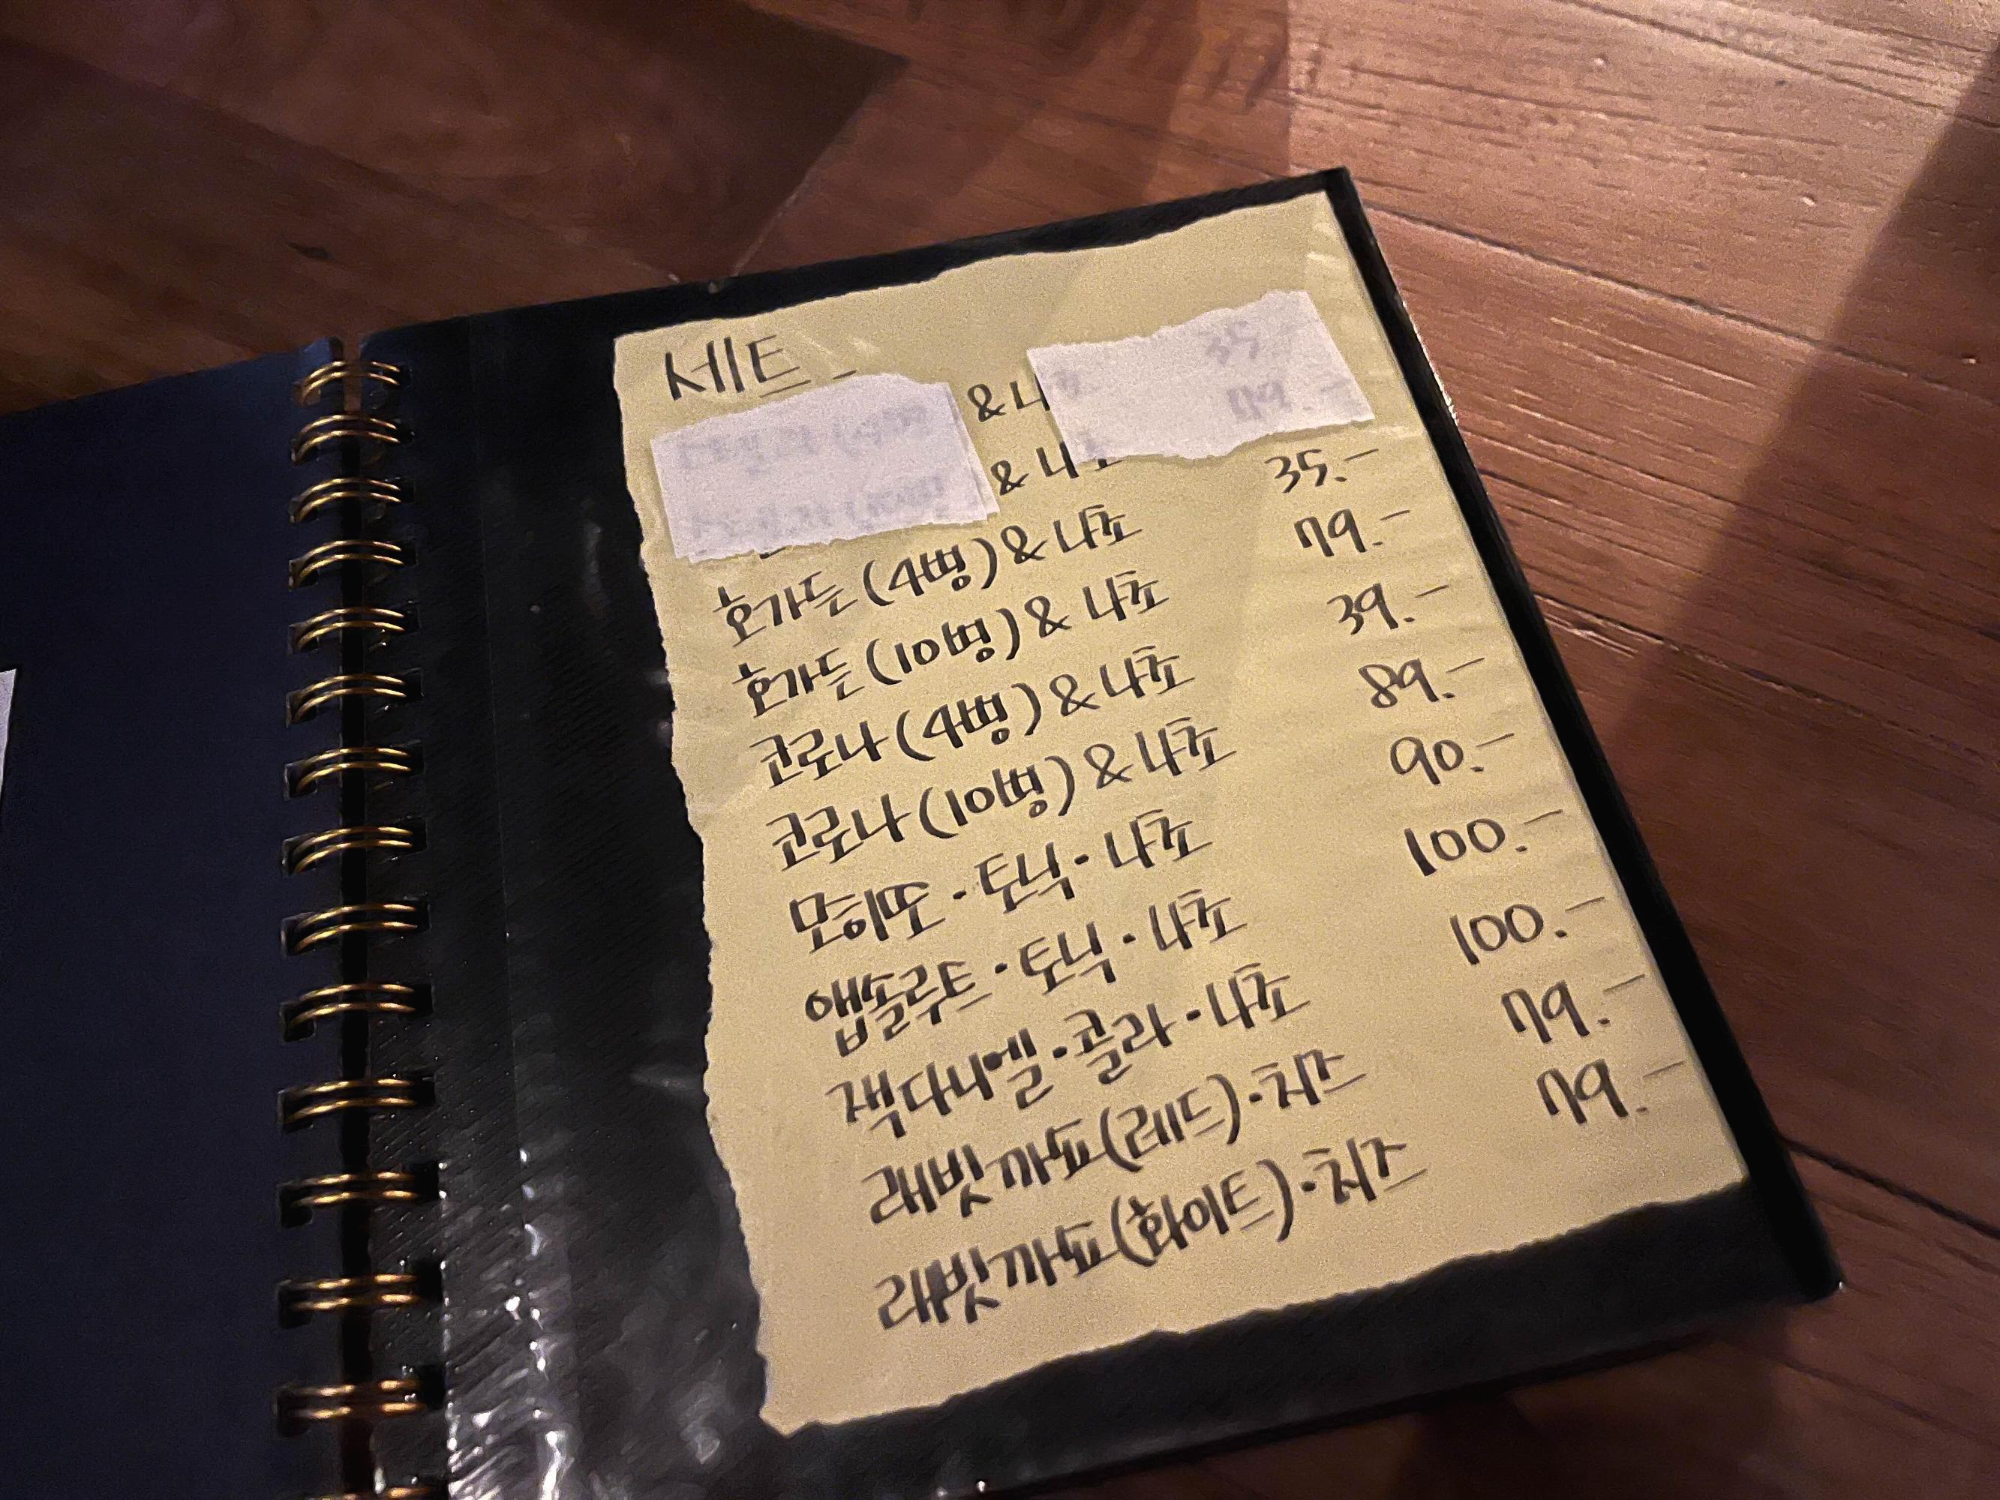 세트
& 나
& 나초
호가든 (4병) & 나초 35.-
호가든 (10병) & 나초 79.-
코로나 (4병) & 나초 39.-
코로나 (10병) & 나초 89.-
모히또 · 토닉 · 나초 90.-
앱솔루트 · 토닉 · 나초 100.-
잭다니엘 · 콜라 · 나초 100.-
래빗까쇼(레드) · 치즈 79.-
래빗까쇼(화이트) · 치즈 79.-